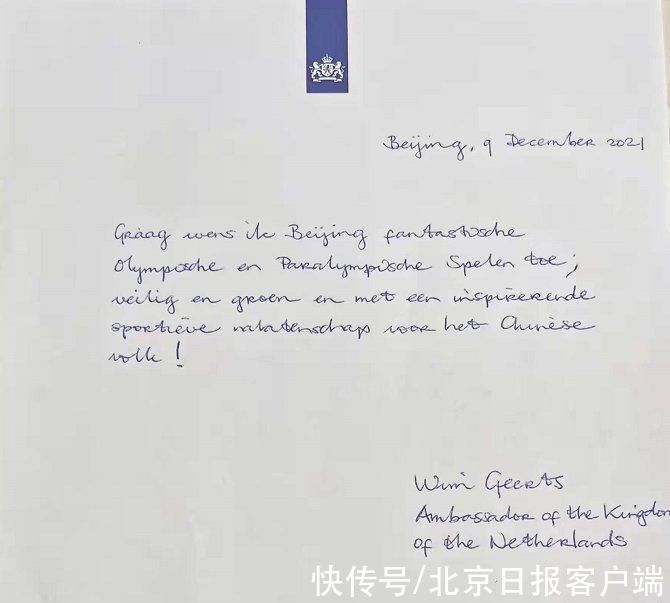 Beijing, 9 December 2021
Graag wens ik Beijing fantastische
Olympische en Paralympische Spelen toe;
veilig en groen en met een inspirerende
sportieve nalatenschap voor het Chinese
volk!
Wim Geerts
Ambassador of the Kingdom
of the Netherlands
快传号/北京日报客户端